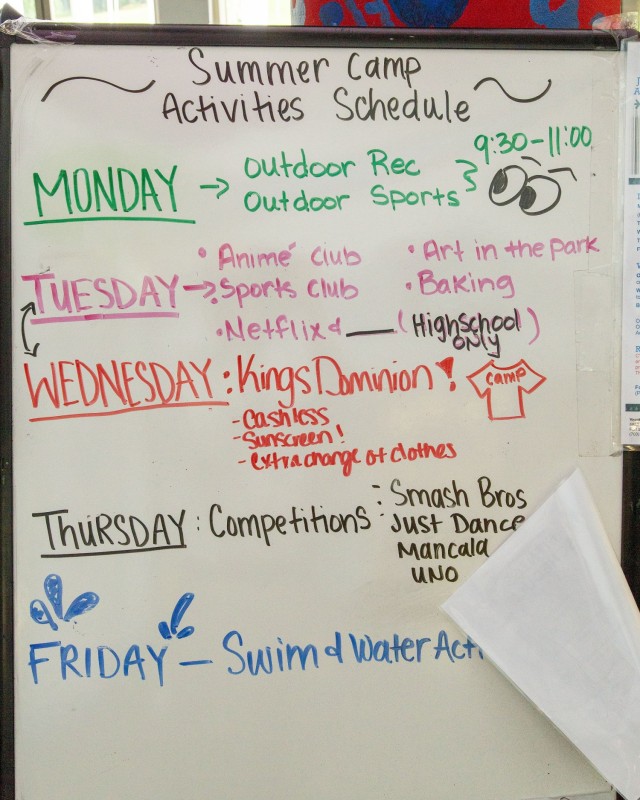 Summer Camp
Activities Schedule
MONDAY → Outdoor Rec
Outdoor Sports
9:30-11:00
TUESDAY →
• Animé Club
• Sports Club
• Netflix & ___ (Highschool ONLY)
• Art in the park
• Baking
WEDNESDAY: Kings Dominion!
camp
- Cashless
- Sunscreen!
- extra change of clothes
THURSDAY: Competitions:
Smash Bros
Just Dance
Mancala
UNO
FRIDAY – Swim & Water